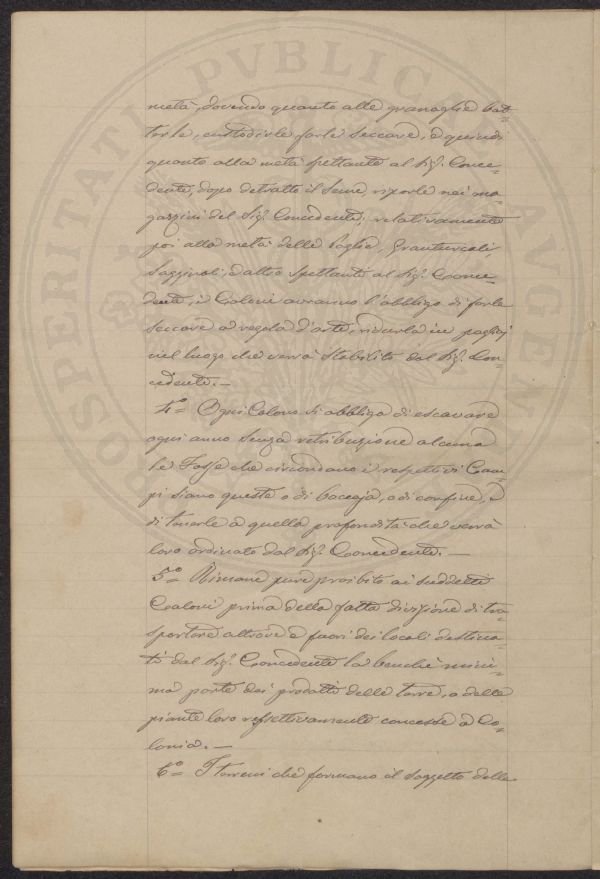 PROSPERITATI PVBLICAE AVGENDAE
metà, dovendo quanto alle granaglie bat-
terle, custodirle farle seccare, e quindi
quanto alla metà spettante al Sigr. Conce-
dente, dopo detratto il seme, riporle nei ma-
gazzini del Sigr. Concedente; relativamente
poi alla metà delle Paglie, Granturcali,
Sagginali, ed altro spettante al Sigr. Conce-
dente, i Coloni avranno l'obbligo di farle
seccare a regola d'arte, ridurla in pagliaj
nel luogo che verrà stabilito dal Sigr. Con-
cedente. —
4º Ogni Colono si obbliga di escavare
ogni anno senza retribuzione alcuna
le Fosse che circondano i respettivi Cam-
pi siano queste o di , o di confine, e
di tenerle a quella profondità che verrà
loro ordinato dal Sigr. Concedente. —
5º Rimane pure proibito ai suddetti
Coloni prima della fatta divizione di tra-
sportare altrove e fuori dei locali destina-
ti dal Sigr. Concedente la benchè mini-
ma parte dei prodotti delle terre, o delle
piante loro respettivamente concesse a Co-
lonia. —
6º I terreni che formano il soggetto della